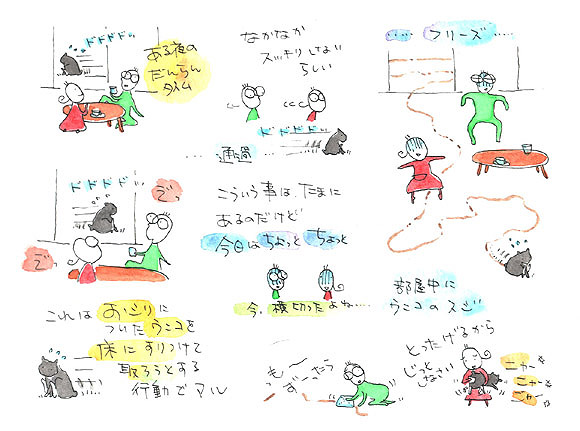 ドドドドッ
ある夜の
だんらん
タイム
ドドドド
ぞっ
ぞっ
これは おシリに
ついたウンコを
床にすりつけて
取ろうとする
行動でアル
なかなか
スッキリしない
らしい
ドドドドッ
……通過…
こういう事は、たまに
あるのだけど
今日はちょっとちょっと
今、横切ったよね……
も〜〜
フリーズ…
部屋中に
ウンコのスジ
とったげるから
じっと
しなさい
ニャー
ニャー
ニャー